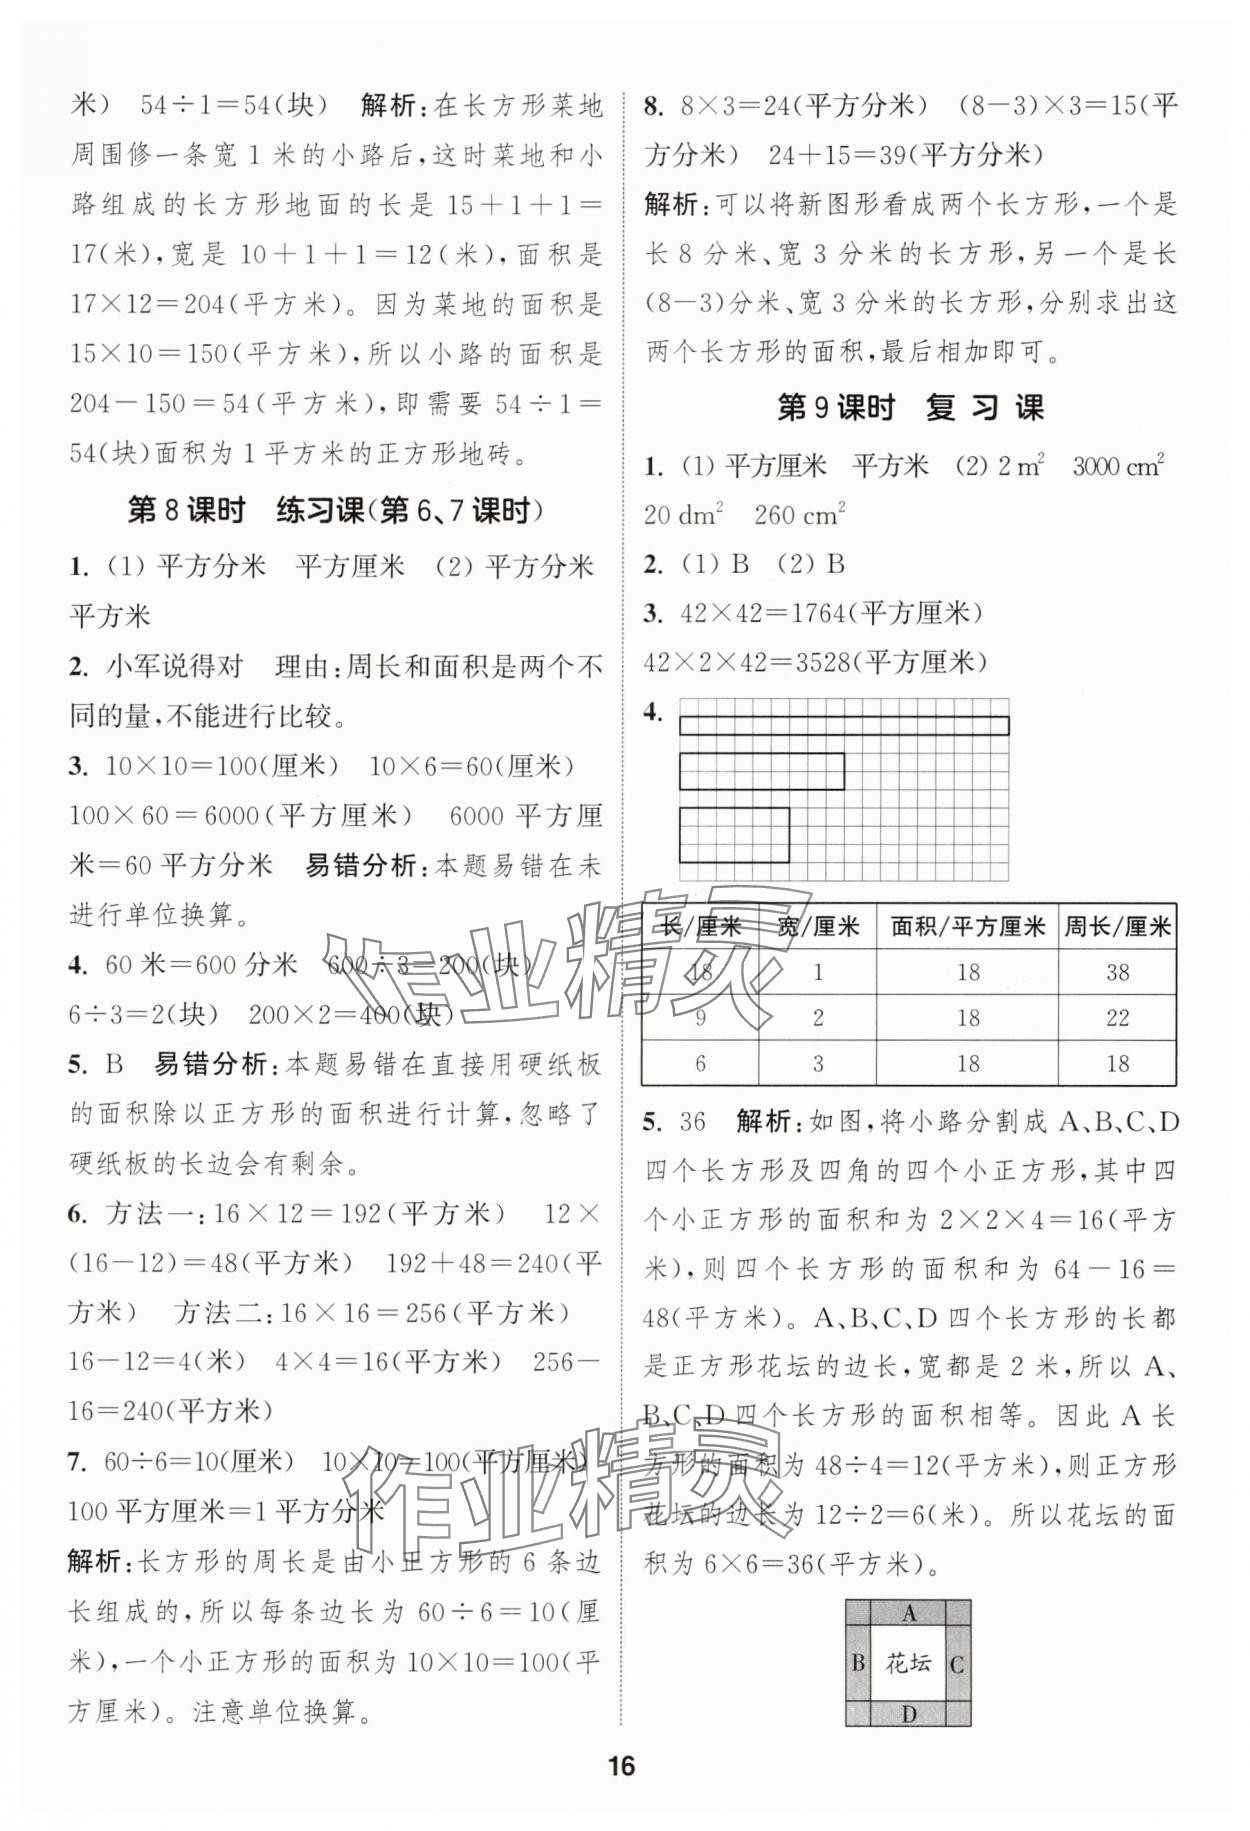 米) 54÷1=54(块) 解析:在长方形菜地
周围修一条宽 1 米的小路后,这时菜地和小
路组成的长方形地面的长是 15+1+1=
17(米),宽是 10+1+1=12(米),面积是
17×12=204(平方米)。因为菜地的面积是
15×10=150(平方米),所以小路的面积是
204-150=54(平方米),即需要 54÷1=
54(块)面积为 1 平方米的正方形地砖。
第 8 课时 练习课(第 6、7 课时)
1. (1) 平方分米 平方厘米 (2) 平方分米
平方米
2. 小军说得对 理由:周长和面积是两个不
同的量,不能进行比较。
3. 10×10=100(厘米) 10×6=60(厘米)
100×60=6000(平方厘米) 6000 平方厘
米=60 平方分米 易错分析:本题易错在未
进行单位换算。
4. 60 米=600 分米 600÷3=200(块)
6÷3=2(块) 200×2=400(块)
5. B 易错分析:本题易错在直接用硬纸板
的面积除以正方形的面积进行计算,忽略了
硬纸板的长边会有剩余。
6. 方法一:16×12=192(平方米) 12×
(16-12)=48(平方米) 192+48=240(平
方米) 方法二:16×16=256(平方米)
16-12=4(米) 4×4=16(平方米) 256-
16=240(平方米)
7. 60÷6=10(厘米) 10×10=100(平方厘米)
100 平方厘米=1 平方分米
解析:长方形的周长是由小正方形的 6 条边
长组成的,所以每条边长为 60÷6=10(厘
米),一个小正方形的面积为 10×10=100(平
方厘米)。注意单位换算。
8. 8×3=24(平方分米) (8-3)×3=15(平
方分米) 24+15=39(平方分米)
解析:可以将新图形看成两个长方形,一个是
长 8 分米、宽 3 分米的长方形,另一个是长
(8-3)分米、宽 3 分米的长方形,分别求出这
两个长方形的面积,最后相加即可。
第 9 课时 复 习 课
1. (1) 平方厘米 平方米 (2) 2 m² 3000 cm²
20 dm² 260 cm²
2. (1) B (2) B
3. 42×42=1764(平方厘米)
42×2×42=3528(平方厘米)
4.
长/厘米 宽/厘米 面积/平方厘米 周长/厘米
18 1 18 38
9 2 18 22
6 3 18 18
5. 36 解析:如图,将小路分割成 A、B、C、D
四个长方形及四角的四个小正方形,其中四
个小正方形的面积和为 2×2×4=16(平方
米),则四个长方形的面积和为 64-16=
48(平方米)。A、B、C、D 四个长方形的长都
是正方形花坛的边长,宽都是 2 米,所以 A、
B、C、D 四个长方形的面积相等。因此 A 长
方形的面积为 48÷4=12(平方米),则正方形
花坛的边长为 12÷2=6(米)。所以花坛的面
积为 6×6=36(平方米)。
A
B 花坛 C
D
16
作业精灵
作业精灵